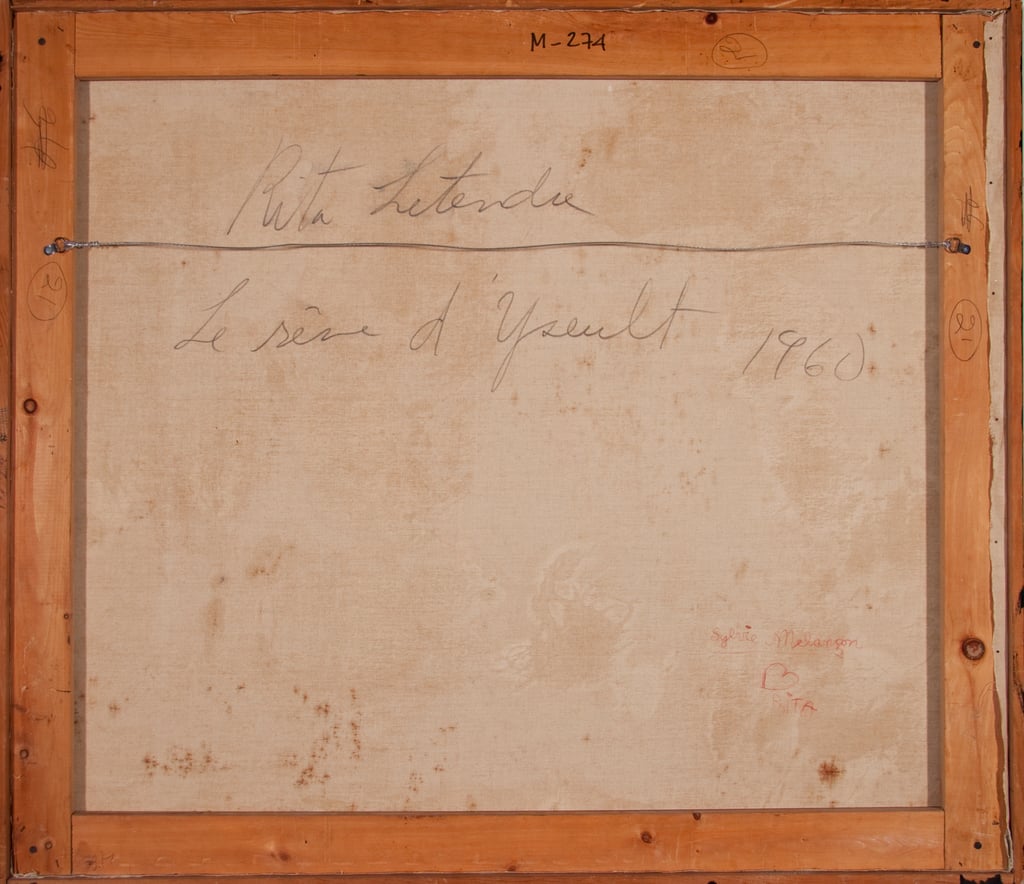 M-274
21
Rita Letendre
Le rêve d'Yseult 1960
21
21
Sylvie Melançon
RITA